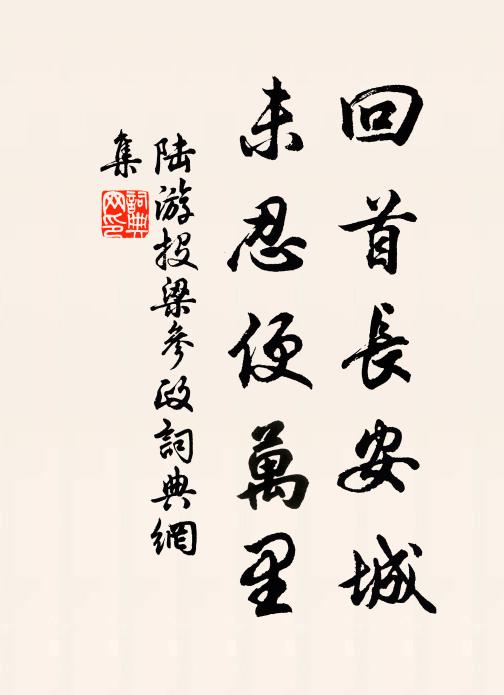 回首長安城
未忍便萬里
陸游投梁參政詞典網
集
詞典
网印